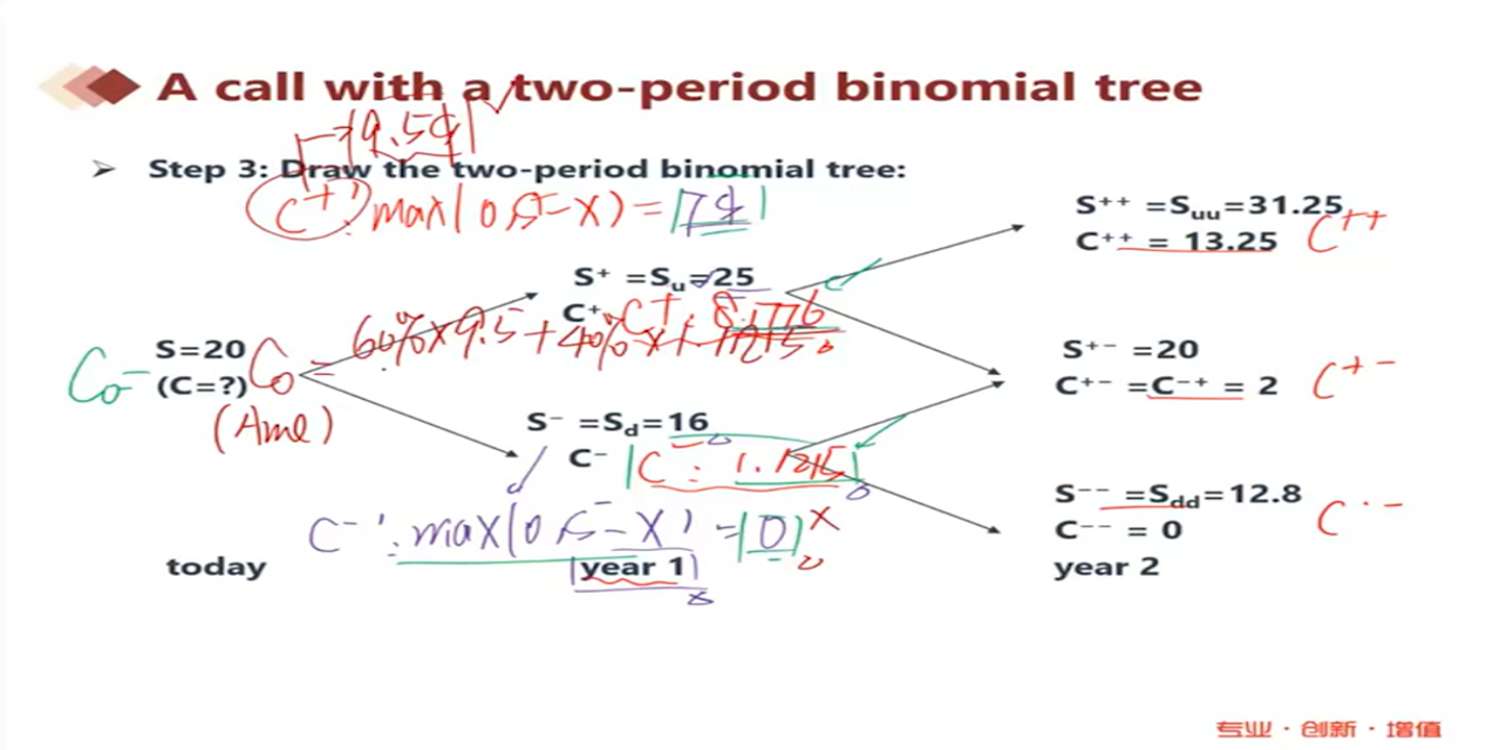 A call with a two-period binomial tree
9.5$
➢ Step 3: Draw the two-period binomial tree:
C⁺': max(0, S⁺-X) = 7$
S⁺⁺ =Suu=31.25
C⁺⁺ = 13.25 C⁺⁺
S⁺ =Su=25
C⁺ C⁺: 8.1776
C₀ = 60% x 9.5 + 40% x 1.1215
S=20
C₀ (C=?)
(Ame)
S⁺⁻ =20
C⁺⁻ =C⁻⁺ = 2 C⁺⁻
S⁻ =Sd=16
C⁻ C⁻: 1.1215
S⁻⁻ =Sdd=12.8
C⁻⁻ = 0 C⁻⁻
C⁻': max(0, S⁻-X) = 0 x
today year 1 year 2
专业 · 创新 · 增值